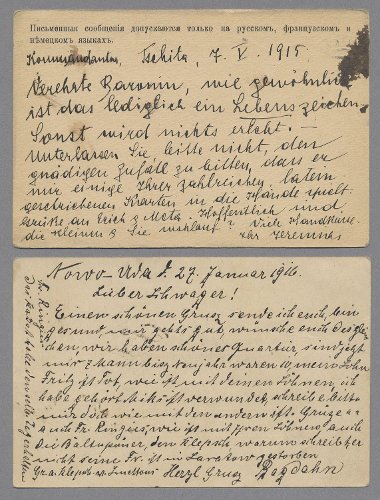 Письменныя сообщенія допускаются только на русскомъ, французскомъ и
нѣмецкомъ языкахъ.
Tschita, 7. V. 1915.
Verehrte Baronin, wie gewöhnlich
ist das lediglich ein Lebenszeichen.
Sonst wird nichts erlebt. —
Unterlassen Sie bitte nicht, den
gnädigen Zufall zu bitten, dass er
mir einige Ihrer zahlreichen, latein
geschriebenen Karten in die Hände spielt.
Grüße an Erich & Meta. Hoffentlich sind
die Kleinen & Sie wohlauf? Viele Handküsse
Ihr
Nowo-Uda d. 27. Januar 1916.
Lieber Schwager!
Einen schönen Gruss sende ich euch, bin
gesund mir gehts gut, wünsche euch desglei
chen, wir haben schönes Quartier sind jetzt
mir 7 Mann bis Neujahr waren 10, mein Sohn
Fritz ist Tot, wie ist mit deinen Söhnen, ich
habe gehört verwundet, schreibe bitte
mir wie mit den anderen ist. Grüze
auch Fr. wie ist mit ihren auch
die den Klepsch, warum schreibt er
nicht seine Fr. ist in gestorben
Herzl Gruss Bogdahn